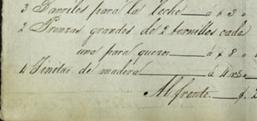 3 Barriles para la leche — á $ 3 "
2 Prensas grandes de 2 tornillos cada
una para quesos — á $ 8 "
4 Tinitas de madera — á 4
Al frente — $